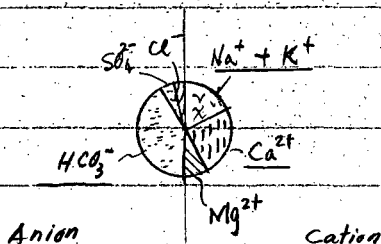 SO₄²⁻ Cl⁻ Na⁺ + K⁺
HCO₃⁻ Ca²⁺
Mg²⁺
Anion Cation